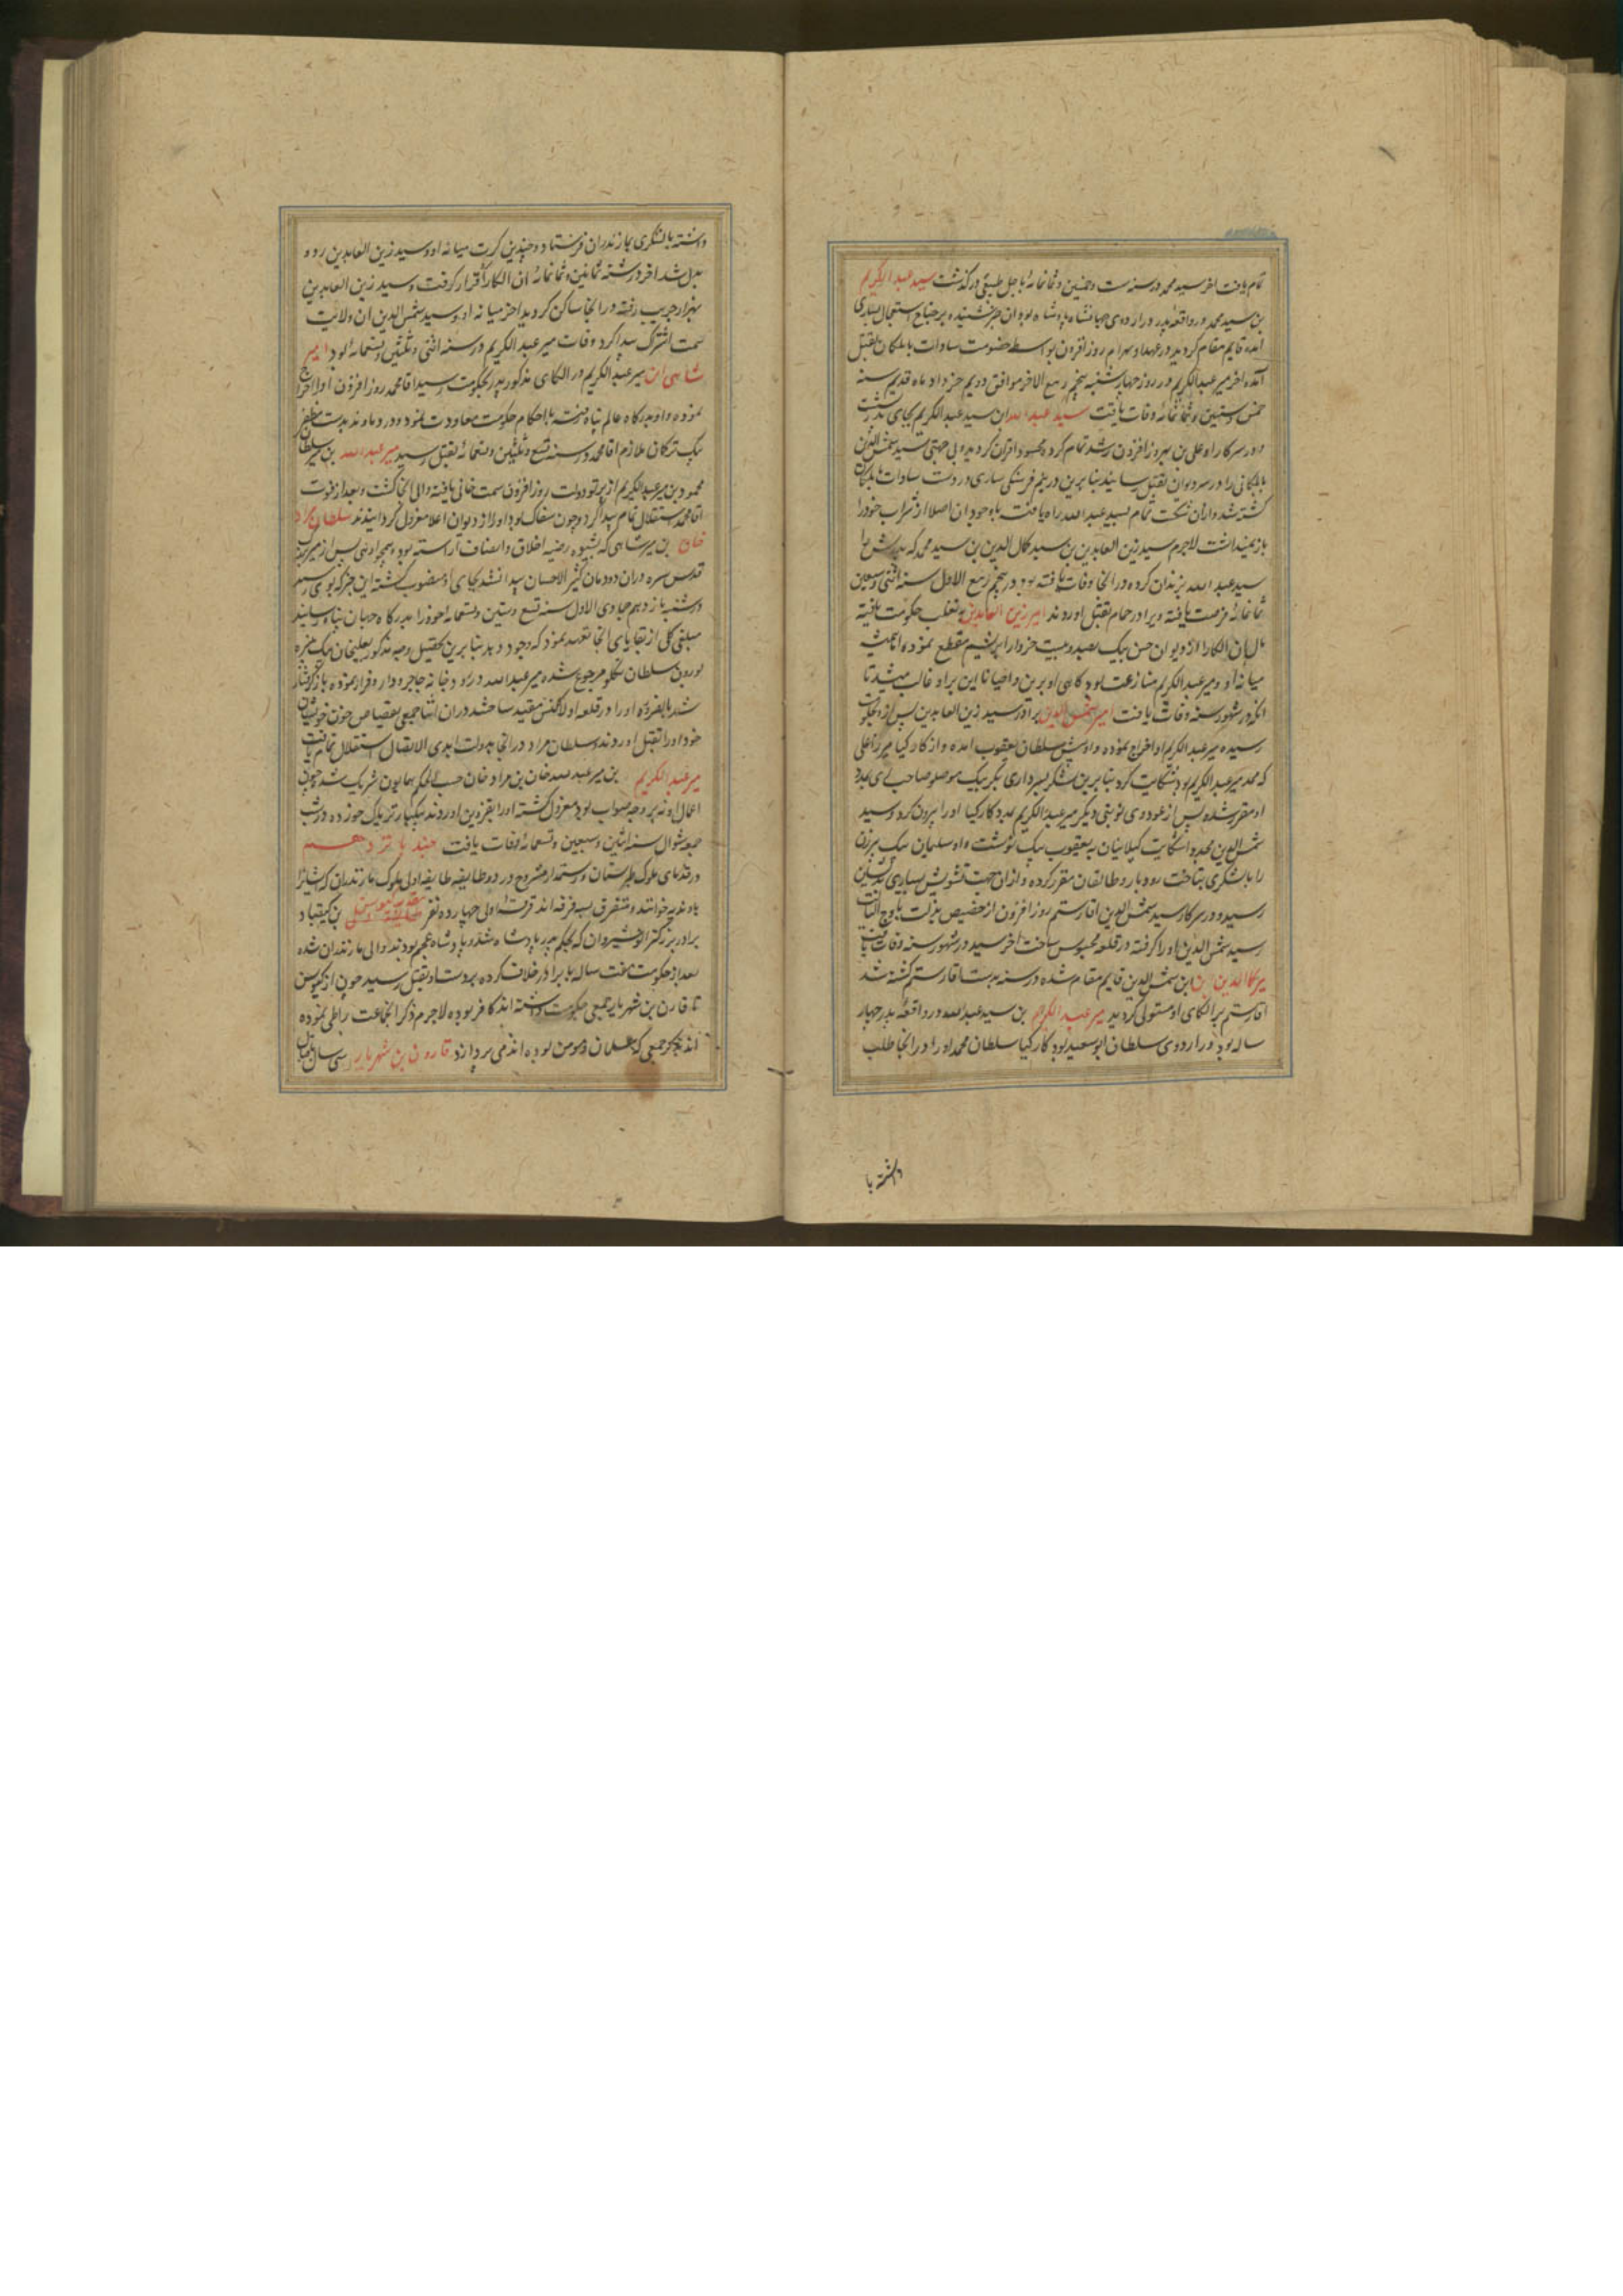 تمام یافت اخر سید محمد در سنه ست و خمسین و ثمانمائه باجل طبیعی درگذشت سید عبد الکریم
بن سید محمد در واقعه پدر در اردوی جهانشاه پادشاه بود ان خبر شنیده بر جناح استعجال بساری
آمده قایم مقام کردید در عهد او بهرام روز افزون بواسطه خصومت سادات بابلکان بقتل
آمده اخر میر عبد الکریم در روز چهارشنبه پنجم ربیع الاخر موافق دویم خرداد ماه قدیم سنه
خمس و ستین و ثمانمائه وفات یافت سید عبد الله ابن سید عبد الکریم بجای پدر نشست
و در سرکار او علی بن بهروز افزون رشد تمام کرد و محسود اقران کردید و بی جهتی سید شمس الدین
بابلکانی را در سر دیوان بقتل رسانید بنابرین در نیم فرسنگی ساری در دست سادات بابلکان
کشته شد و ازان نکبت تمام بسید عبد الله راه یافت باوجود ان اصلا از شراب خود را
باز نمیداشت لاجرم سید زین العابدین بن سید کمال الدین بن سید محمد که پدرش را
سید عبد الله بزندان کرده و در انجا وفات یافته بود در پنجم ربیع الاول سنه اثنی و سبعین
ثمانمائه فرصت یافته ویرا در حمام بقتل اوردند امیر زین العابدین به تغلب حکومت یافته
مال ان الکا را از دیوان حسن بیک بصد و بیست خروار ابریشم مقطع نموده همیشه
میانه او و میر عبد الکریم منازعت بود کاهی او برین و احیانا این براو غالب میشد تا
انکه در شهور سنه وفات یافت امیر شمس الدین برادر سید زین العابدین پس از او بحکومت
رسیده میر عبد الکریم او اخراج نموده و او پیش سلطان یعقوب امده و از کارکیا میرزا علی
که ممد میر عبد الکریم بود شکایت کرد بنابرین لشکر بسرداری بکر بیک موصلو صاحب ری بمدد
او مقرر شده پس از عود وی نوبتی دیکر میر عبد الکریم بمدد کارکیا او را بیرون کرد و سید
شمس الدین محمد شکایت کیلانیان به یعقوب بیک نوشت و او سلیمان بیک بیژن
را با لشکری بتاخت رودبار و طالقان مقرر کرده و ازان جهت تشویش بسیاری بمیرشمس الدین
رسید و در سرکار سید شمس الدین اقا رستم روز افزون از حضیض مذلت باوج
رسید شمس الدین او را کرفته در قلعه محبوس ساخت اخر سید در شهور سنه وفات یافت
میر کمال الدین بن شمس الدین قایم مقام شده در سنه بدست اقا رستم کشته شد
اقا رستم بر الکای او مستولی کردید میر عبد الکریم بن سید عبد الله در واقعه پدر چهار
ساله بود و در اردوی سلطان ابو سعید بود کارکیا سلطان محمد او را در انجا طلب
داشته با
داشته با لشکری بمازندران فرستاد و چندین کرت میانه او و سید زین العابدین رد و
بدل شد اخر در سنه ثمانین و ثمانمائه ان الکا را قرار کرفت و سید زین العابدین
بهزار جریب رفته در انجا ساکن کردید اخر میانه او و سید شمس الدین ان ولایت
سمت اشتراک پیدا کرد وفات میر عبد الکریم در سنه اثنی و ثلثین و تسعمائه بود امیر
شاهی ابن میر عبد الکریم در الکای مذکور پدر بحکومت رسید اقا محمد روز افزون او را اخراج
نموده و او بدرکاه عالم پناه رفته با احکام حکومت معاودت نمود و در دماوند بدست مظفر
بیک ترکان ملازم اقا محمد در سنه تسع و ثلثین و تسعمائه بقتل رسید میر عبد الله بن میر سلطان
محمود بن میر عبد الکریم از پرتو دولت روز افزون سمت خانی یافته والی انجا کشت و بعد از فوت
اقا محمد استقلال تمام پیدا کرد و چون سفاک بود او را از دیوان اعلا معزول کردانیدند سلطان مراد
خان بن میر شاهی که بشیوه رضیه اخلاق و انصاف آراسته بود و همچو اوئی پس از میر بزرک
قدس سره دران دودمان کثیر الاحسان پیدا نشد بجای او منصوب کشته این خبر که بوی رسید
در شنبه یازدهم جمادی الاول سنه تسع و ستین و تسعمائه خود را بدرکاه جهان پناه رسانید
مبلغی کلی از بقایای انجا تعهد نمود که وجود دهد بنابرین تحصیل وجه مذکور بعلیخان بیک نبیره
بوربون سلطان تکلو مرجوع شده میر عبد الله در رودخانه جاجرود از و فرار نموده باز کرفتار
شد بالضروره او را در قلعه اولاکنس مقید ساختند دران اثنا جمعی بقصاص خون خویشان
خود او را بقتل اوردند و سلطان مراد در انجا بدولت ابدی الاتصال استقلال تمام یافت
میر عبد الکریم بن میر عبد الله خان بن مراد خان حسب الحکم همایون شریک شد چون
اعمال او نه بر وجه صواب بود معزول کشته او را بقزوین اوردند بیکبار تریاک خورده در شب
جمعه شوال سنه اثنین و سبعین و تسعمائه وفات یافت
در قدمای ملوک طبرستان و رستمدار مشروح در دو طایفه طایفه اولی ملوک مازندران که ایشانرا
باوندیه خوانند و متفرق بسه فرقه اند فرقه اولی چهارده نفر بن کیقباد
برادر بزرکتر انوشیروان که بحکم پدر پادشاه شد و پادشاه عجم بودند والی مازندران شده
بعد از حکومت هفت ساله با برادر خلاف کرده بر دست او بقتل رسید چون از کیوس
تا قارن بن شهریار جمعی حکومت داشته اند کافر بوده لاجرم ذکر انجماعت را طی نموده
بذکر جمعی که مسلمان و مومن بوده اند می پردازد قارون بن شهریار سی سال